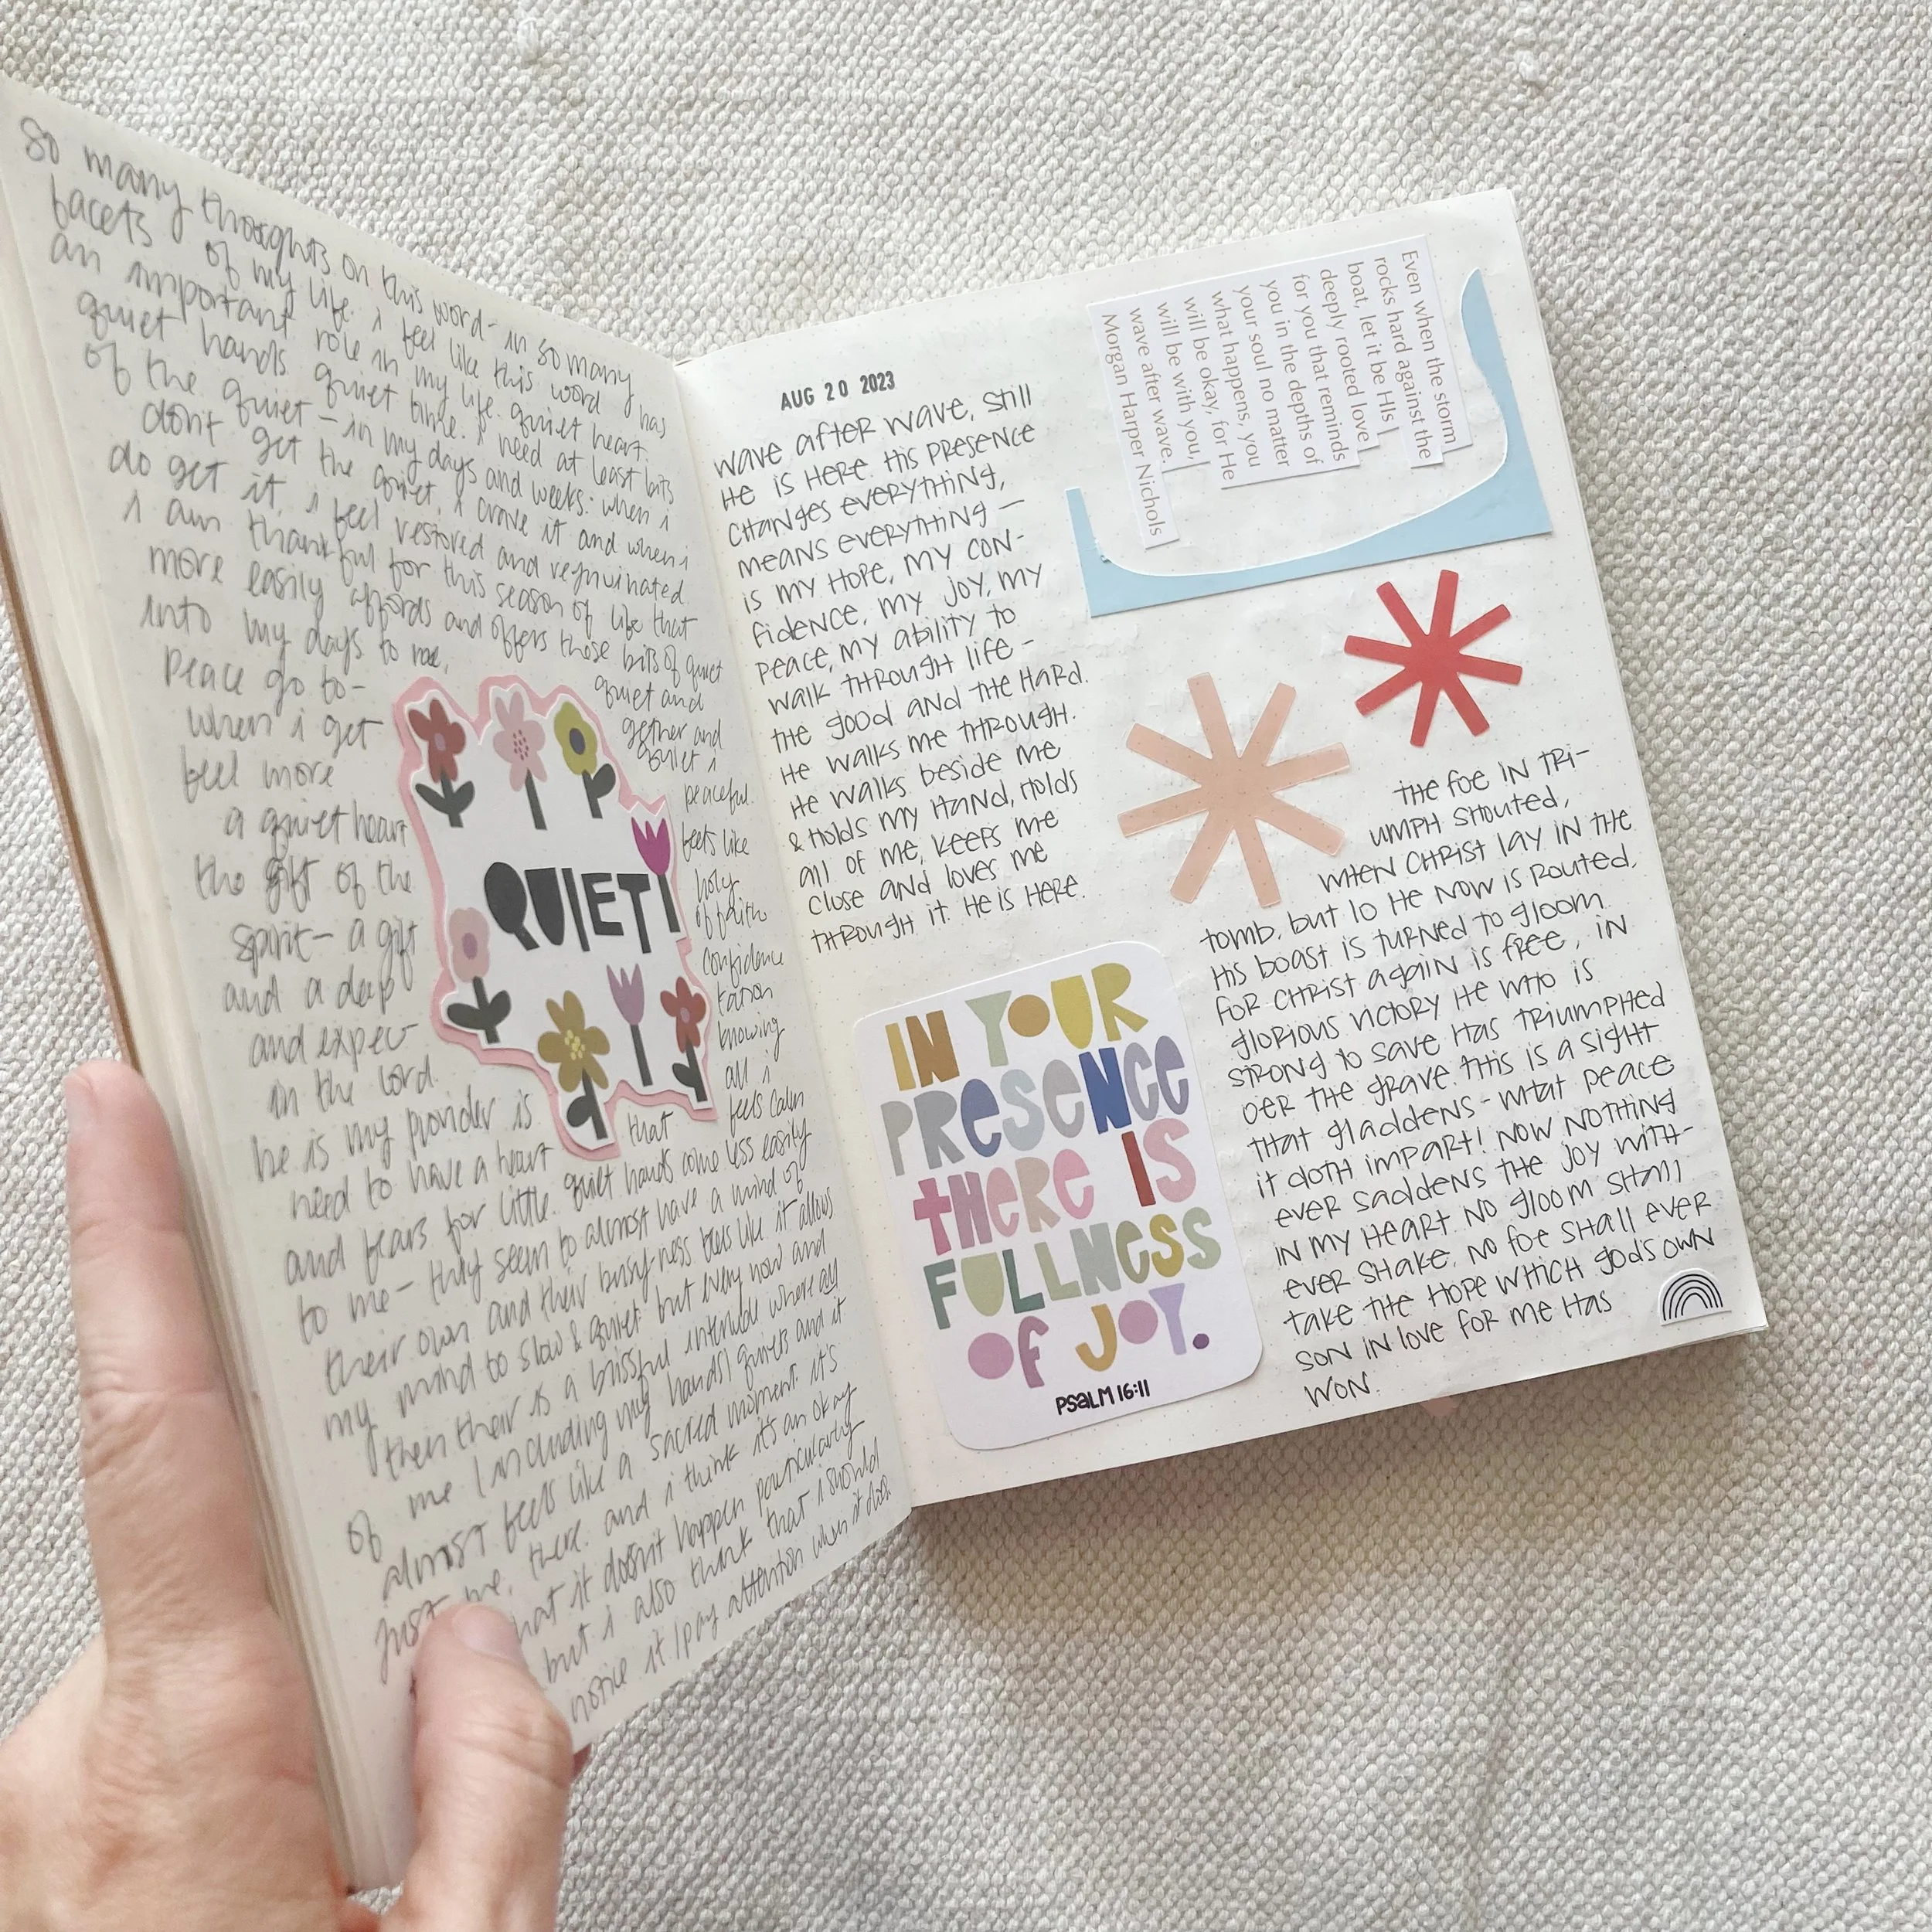 so many thoughts on this word - in so many
facets of my life. i feel like this word has
an important role in my life. quiet heart.
quiet hands. quiet time. i need at least bits
of the quiet - in my days and weeks. when i
don't get the quiet, i crave it and when i
do get it, i feel restored and rejuvinated.
i am thankful for this season of life that
more easily affords and offers those bits of quiet
into my days to me. quiet and
peace go to- gether and
when i get quiet i
feel more peaceful.
a quiet heart feels like
the gift of the holy
spirit - a gift of faith
and a deep confidence
and expec- tation
in the lord. knowing
he is my provider is all i
need to have a heart that feels calm
and fears for little. quiet hands come less easily
to me - they seem to almost have a mind of
their own and their busy-ness feels like it allows
my mind to slow & quiet. but every now and
then their is a blissful interlude where all
of me (including my hands) quiets and it
almost feels like a sacred moment. it's
just me, there. and i think it's an okay
that it doesn't happen particularly
but i also think that i should
notice it/pay attention when it does
QUIET
AUG 20 2023
wave after wave, still
He is Here. His presence
changes everything,
means everything -
is my hope, my con-
fidence, my joy, my
peace, my ability to
walk through life -
the good and the hard.
He walks me through.
He walks beside me
& holds my hand, holds
all of me, keeps me
close and loves me
through it. He is Here.
Even when the storm
rocks hard against the
boat, let it be HIs
deeply rooted love
for you that reminds
you in the depths of
your soul no matter
what happens, you
will be okay, for He
will be with you,
wave after wave.
Morgan Harper Nichols
IN YOUR
PRESENCE
THERE IS
FULLNESS
OF JOY.
PSALM 16:11
the foe in tri-
umph shouted,
when Christ lay in the
tomb, but lo He now is routed,
His boast is turned to gloom.
for Christ again is free, in
glorious victory He who is
strong to save has triumphed
oer the grave. this is a sight
that gladdens - what peace
it doth impart! now nothing
ever saddens the joy with-
in my heart. no gloom shall
ever shake, no foe shall ever
take the hope which gods own
son in love for me has
won.